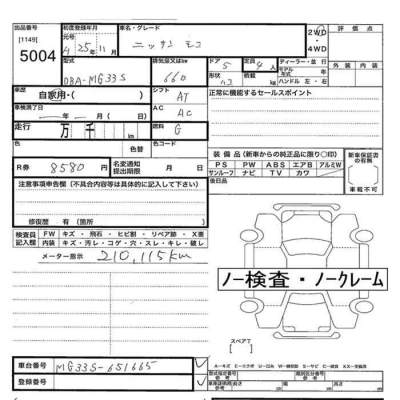 出品番号 初度登録年月 車名・グレード 2WD・4WD 評価点
[1149] 元号
5004 4 25年 11月 ニッサン モコ 外装 内装
型式 排気量又はkw ドア 定員 ディーラー・並行
DBA-MG33S 660 5 4人 モデル年式 年
形状 積載 kg ハンドル 左・右
車歴 シフト 正常に機能するセールスポイント
自家用・( ) AT
車検満了日 AC
年 月 日 AC
走行 万 千 燃料
km G
色 色替 色コード
装備品(新車からの純正品に限り○印) 新車保証書の有無
PS PW ABS エアB アルミW 有
サンルーフ ナビ TV カワ
後日品 車載不可
R券 8580円 名変通知提出期限 月 日
注意事項申告欄(不具合内容等は具体的に記入して下さい)
修復歴 有(箇所 )
検査員記入欄 FW キズ・飛石・ヒビ割・リペア跡・X要
内装 キズ・汚レ・コゲ・穴・スレ・キレ・破レ
メーター表示 210,115km
ノー検査・ノークレーム
スペアT
車台番号 MG33S-651665
登録番号
A-キズ E-エクボ W-補修跡 S-サビ C-腐食 XX-交換済
型式指定番号 類別区分番号
車庫証明用(cm) 長さ 幅 高さ